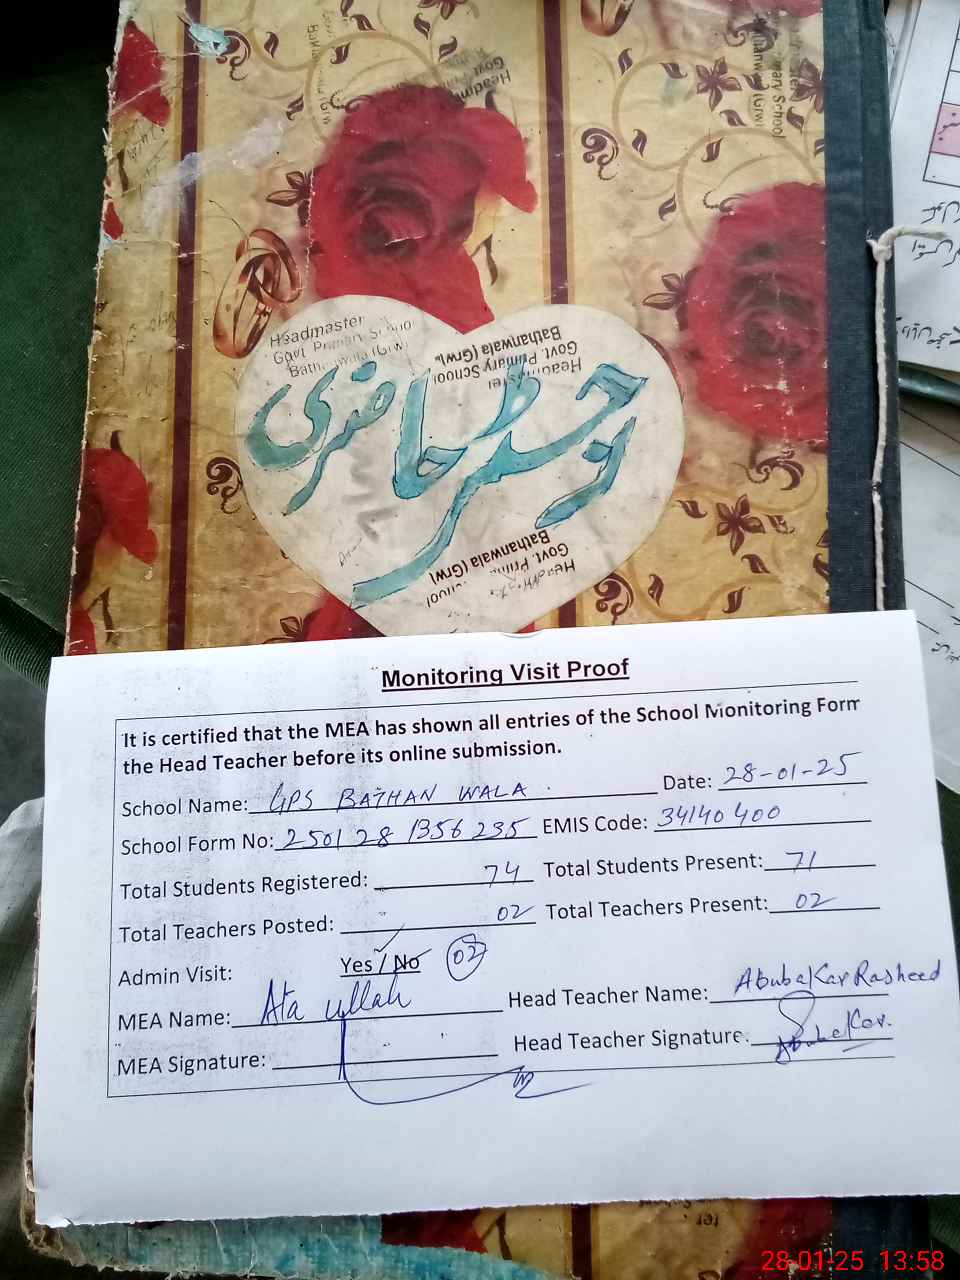 Headmaster
Govt Primary School
Bathanwala (Grw)
Headmaster
Govt Primary School
Bathanwala (Grw)
رجسٹر حاضری
Govt. Prim
Bathanwala (Grw)
Monitoring Visit Proof
It is certified that the MEA has shown all entries of the School Monitoring Form
the Head Teacher before its online submission.
School Name: GPS BATHAN WALA. Date: 28-01-25
School Form No: 250128 1356 235 EMIS Code: 34140 400
Total Students Registered: 74 Total Students Present: 71
Total Teachers Posted: 02 Total Teachers Present: 02
Admin Visit: Yes / No 02
MEA Name: Ata ullah Head Teacher Name: Abubakar Rasheed
MEA Signature: Head Teacher Signature: Abubakar.
28-01-25 13:58